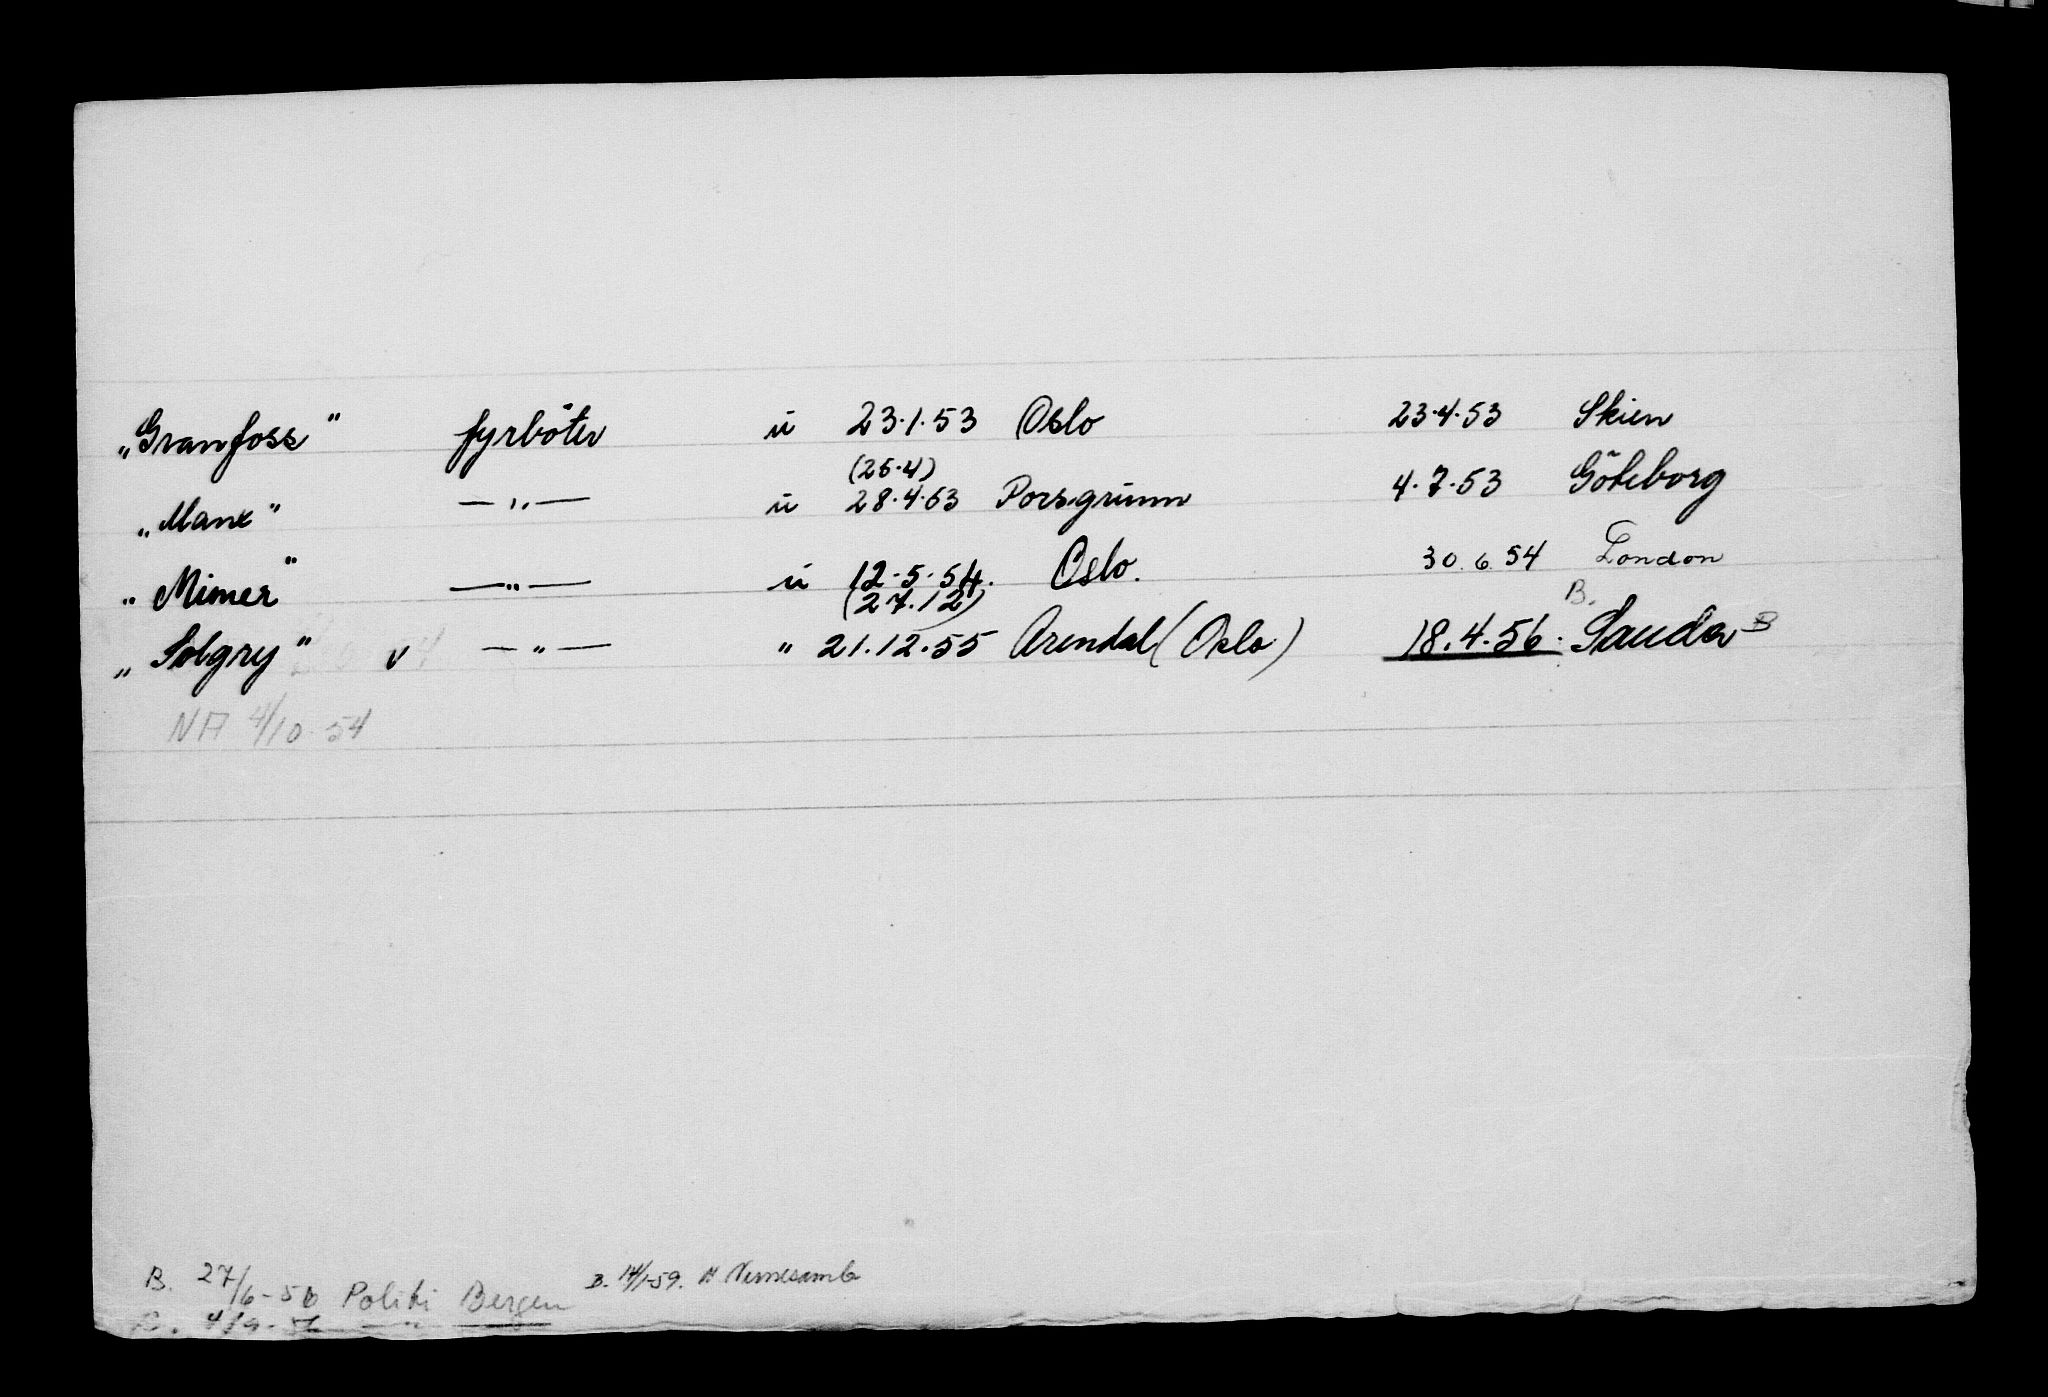 „Granfoss" fyrböter u 23.1.53 Oslo 23.4.53 Skien
(25.4)
„Manx" —„— u 28.4.53 Porsgrunn 4.7.53 Göteborg
„Mimer" —„— u 12.5.54. Oslo. 30.6.54 London
(27.12) B.
„Solgry" v —„— " 21.12.55 Arendal (Oslo) 18.4.56. Sauda B
NA 4/10-54
B. 27/6-56 Politi Bergen B. 14/1-59.
B. 4/9-56 —„—